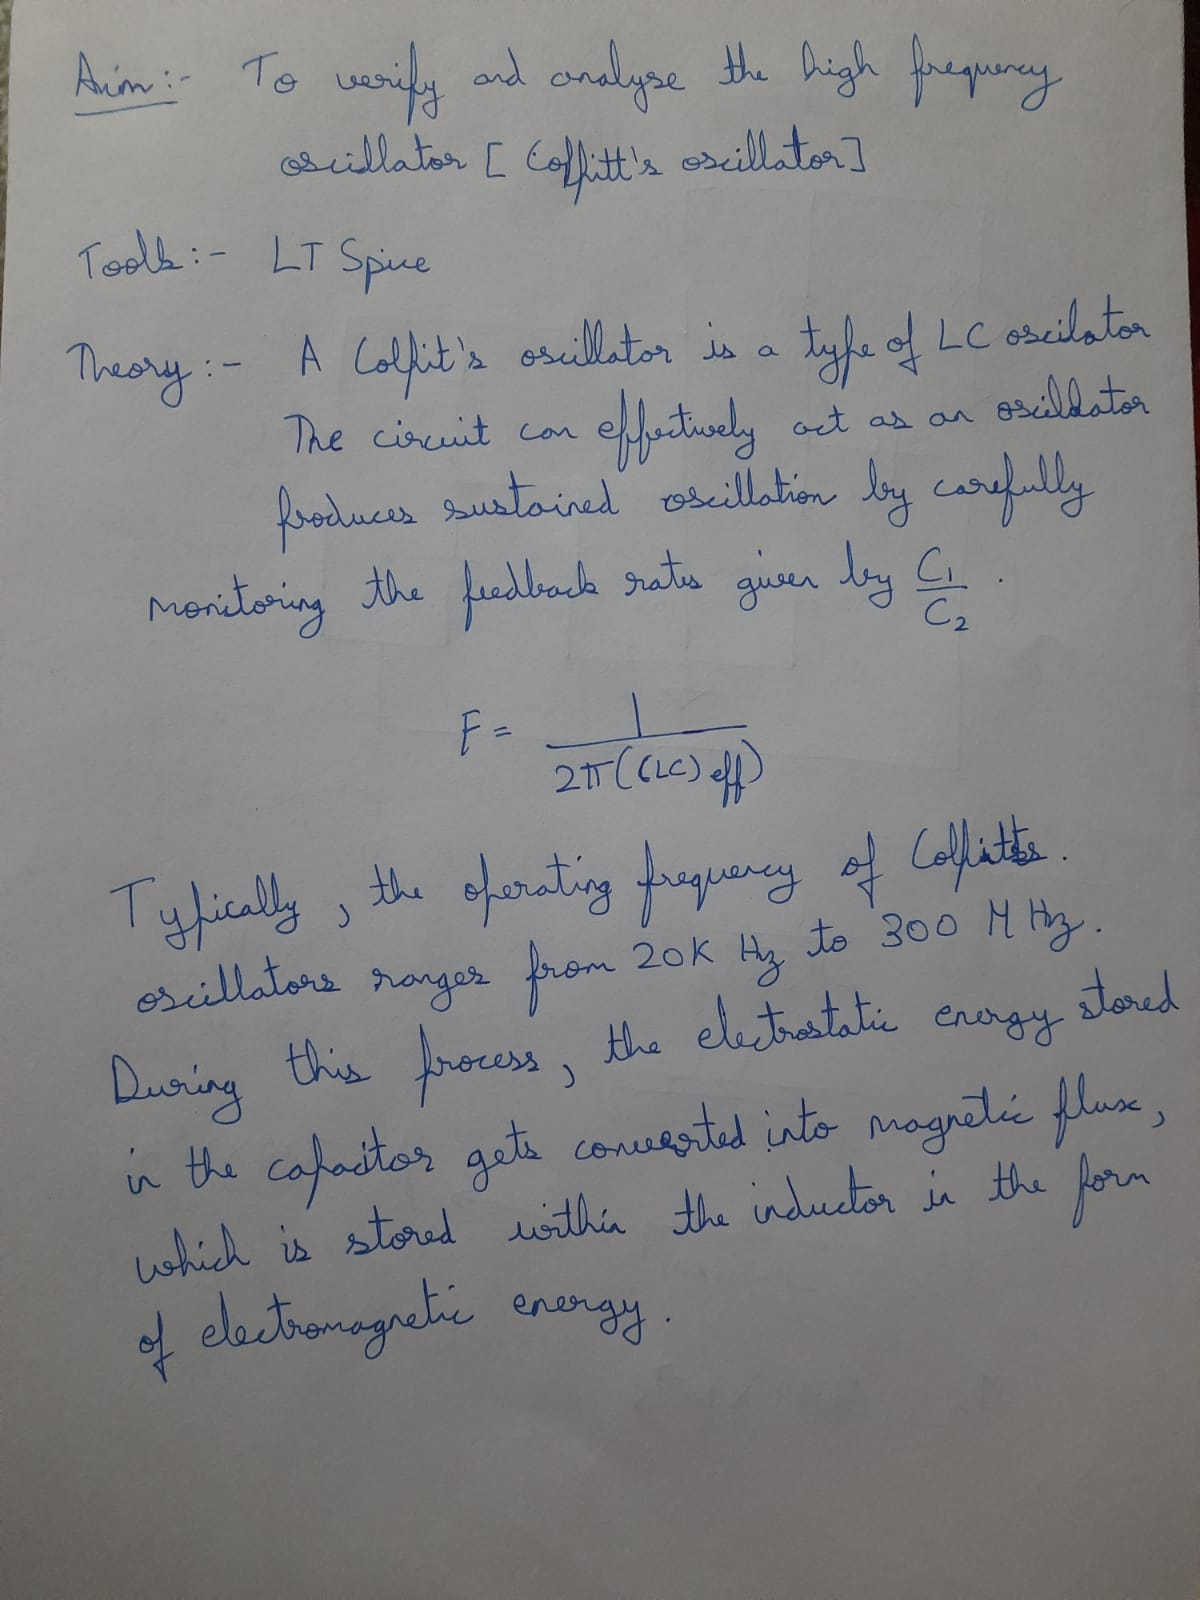 Aim :- To verify and analyse the high frequency
oscillator [ Colpitt's oscillator]
Tools :- LT Spice
Theory :- A Colpit's oscillator is a type of LC oscilator
The circuit can effectively act as an oscillator
produces sustained oscillation by carefully
monitoring the feedback rates given by C1/C2 .
F = 1/2π((LC) eff)
Typically , the operating frequency of Colpitts .
oscillators ranges from 20K Hz to 300 M Hz .
During this process , the electrostatic energy stored
in the capacitor gets converted into magnetic flux ,
which is stored within the inductor in the form
of electromagnetic energy .